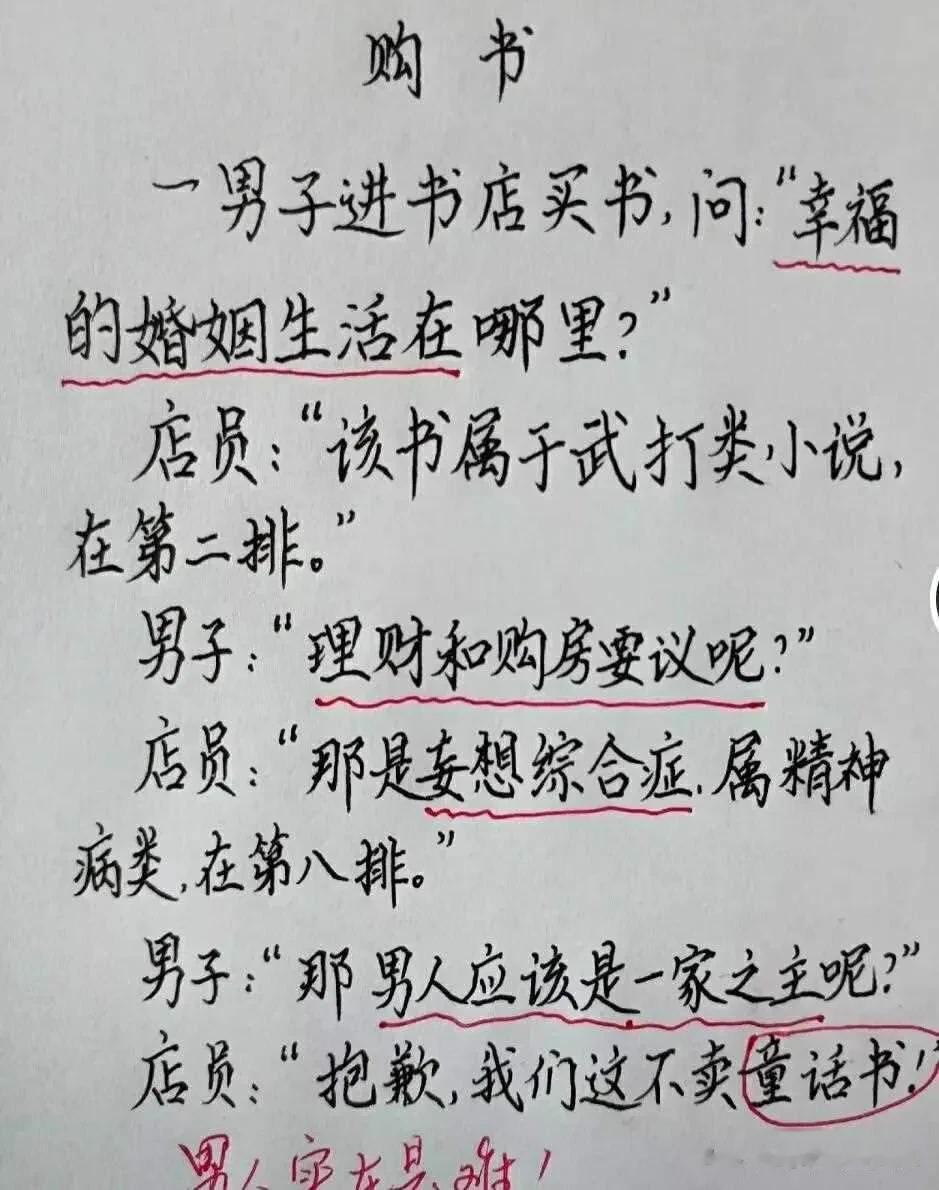 购 书
一男子进书店买书,问:“幸福
的婚姻生活在哪里?”
店员:“该书属于武打类小说,
在第二排。”
男子:“理财和购房要议呢?”
店员:“那是妄想综合症.属精神
病类,在第八排。”
男子:“那男人应该是一家之主呢?”
店员:“抱歉,我们这不卖童话书!”
男人实在是难!